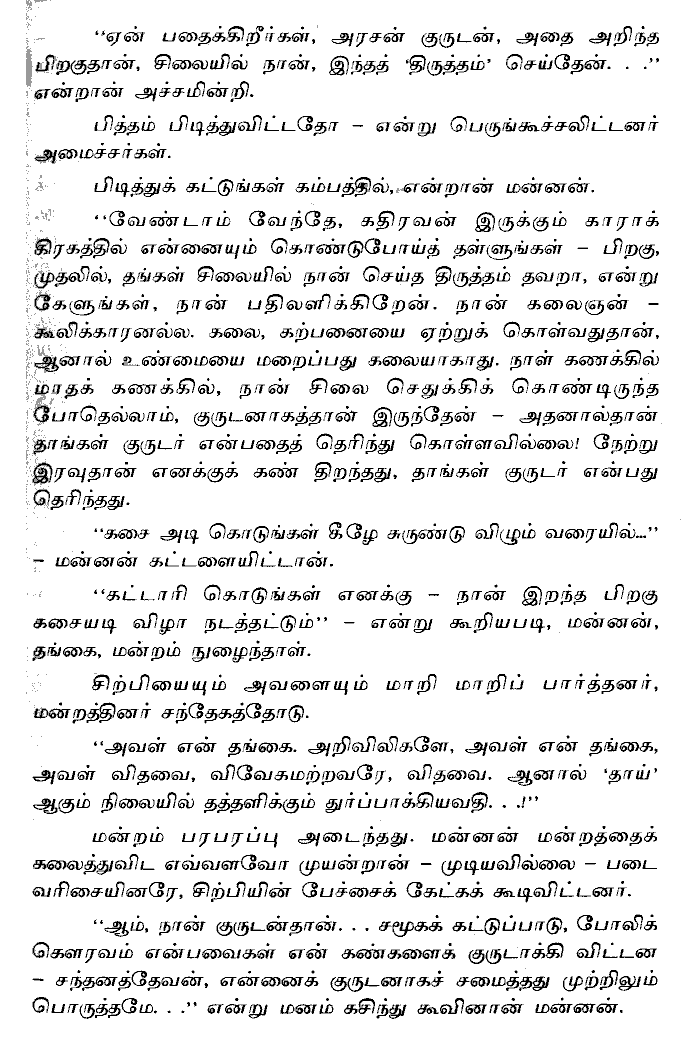 “ஏன் பதைக்கிறீர்கள், அரசன் குருடன், அதை அறிந்த
பிறகுதான், சிலையில் நான், இந்தத் ‘திருத்தம்’ செய்தேன். . .”
என்றான் அச்சமின்றி.
பித்தம் பிடித்துவிட்டதோ – என்று பெருங்கூச்சலிட்டனர்
அமைச்சர்கள்.
பிடித்துக் கட்டுங்கள் கம்பத்தில், என்றான் மன்னன்.
“வேண்டாம் வேந்தே, கதிரவன் இருக்கும் காராக்
கிரகத்தில் என்னையும் கொண்டுபோய்த் தள்ளுங்கள் – பிறகு,
முதலில், தங்கள் சிலையில் நான் செய்த திருத்தம் தவறா, என்று
கேளுங்கள், நான் பதிலளிக்கிறேன். நான் கலைஞன் –
கூலிக்காரனல்ல. கலை, கற்பனையை ஏற்றுக் கொள்வதுதான்,
ஆனால் உண்மையை மறைப்பது கலையாகாது. நாள் கணக்கில்
மாதக் கணக்கில், நான் சிலை செதுக்கிக் கொண்டிருந்த
போதெல்லாம், குருடனாகத்தான் இருந்தேன் – அதனால்தான்
தாங்கள் குருடர் என்பதைத் தெரிந்து கொள்ளவில்லை! நேற்று
இரவுதான் எனக்குக் கண் திறந்தது, தாங்கள் குருடர் என்பது
தெரிந்தது.
“கசை அடி கொடுங்கள் கீழே சுருண்டு விழும் வரையில்...”
– மன்னன் கட்டளையிட்டான்.
“கட்டாரி கொடுங்கள் எனக்கு – நான் இறந்த பிறகு
கசையடி விழா நடத்தட்டும்” – என்று கூறியபடி, மன்னன்,
தங்கை, மன்றம் நுழைந்தாள்.
சிற்பியையும் அவளையும் மாறி மாறிப் பார்த்தனர்,
மன்றத்தினர் சந்தேகத்தோடு.
“அவள் என் தங்கை. அறிவிலிகளே, அவள் என் தங்கை,
அவள் விதவை, விவேகமற்றவரே, விதவை. ஆனால் ‘தாய்’
ஆகும் நிலையில் தத்தளிக்கும் துர்ப்பாக்கியவதி. . .!”
மன்றம் பரபரப்பு அடைந்தது. மன்னன் மன்றத்தைக்
கலைத்துவிட எவ்வளவோ முயன்றான் – முடியவில்லை – படை
வரிசையினரே, சிற்பியின் பேச்சைக் கேட்கக் கூடிவிட்டனர்.
“ஆம், நான் குருடன்தான். . . சமூகக் கட்டுப்பாடு, போலிக்
கௌரவம் என்பவைகள் என் கண்களைக் குருடாக்கி விட்டன
– சந்தனத்தேவன், என்னைக் குருடனாகச் சமைத்தது முற்றிலும்
பொருத்தமே. . .” என்று மனம் கசிந்து கூவினான் மன்னன்.